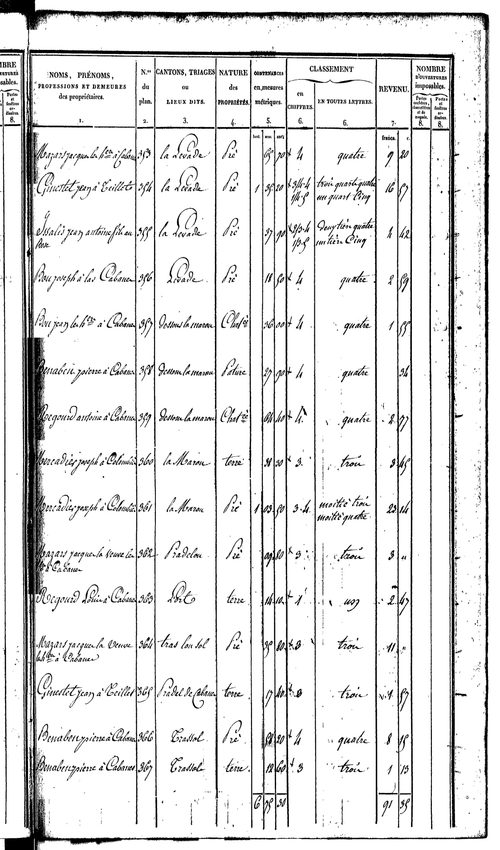 NOMS, PRÉNOMS, PROFESSIONS ET DEMEURES des propriétaires. 1.
N.os du plan. 2.
CANTONS, TRIAGES ou LIEUX DITS. 3.
NATURE des PROPRIÉTÉS. 4.
CONTENANCES en mesures métriques. 5.
CLASSEMENT
en CHIFFRES. 6.
EN TOUTES LETTRES. 6.
REVENU. 7.
NOMBRE D'OUVERTURES imposables.
8. 8.
francs. c.
Mazars jacques à Cabane 353 la Levade Pré 65 70 4 quatre 9 20
Ginestet jean à Teillet 354 la Levade Pré 1 35 20 3/4 4 1/4 5 trois quarts quatre un quart Cinq 16 57
jean antoine fils 355 la Levade Pré 37 90 2/3 4 1/3 5 Deux tiers quatre un tiers Cinq 4 42
Bou joseph à las Cabanes 356 Levade Pré 18 50 4 quatre 2 59
Bou jean à Cabane 357 dessous la maron 36 00 4 quatre 1 55
Benaben pierre à Cabane 358 dessous la maron Pature 27 90 4 quatre 34
Regourd antoine à Cabane 359 dessous la maron 64 40 4 quatre 2 77
Mercadies joseph à 360 la Maron terre 38 30 3 trois 3 45
Mercadies joseph à 361 la Maron Pré 1 03 50 3 4 moitié trois moitié quatre 23 14
Mazars jacques la veuve à Cabane 362 Pradelou Pré 09 80 3 trois 3 "
Regourd Louis à Cabane 363 terre 14 10 1 un 2 47
Mazars jacques la veuve à Cabane 364 tras lou sol Pré 35 80 3 trois 11 "
Ginestet jean à Teillet 365 Pradel de Cabane terre 17 40 3 trois 1 57
Benaben pierre à Cabane 366 Trassol Pré 58 20 4 quatre 8 15
Benaben pierre à Cabanes 367 Trassol terre 12 60 3 trois 1 13
6 75 30 91 35